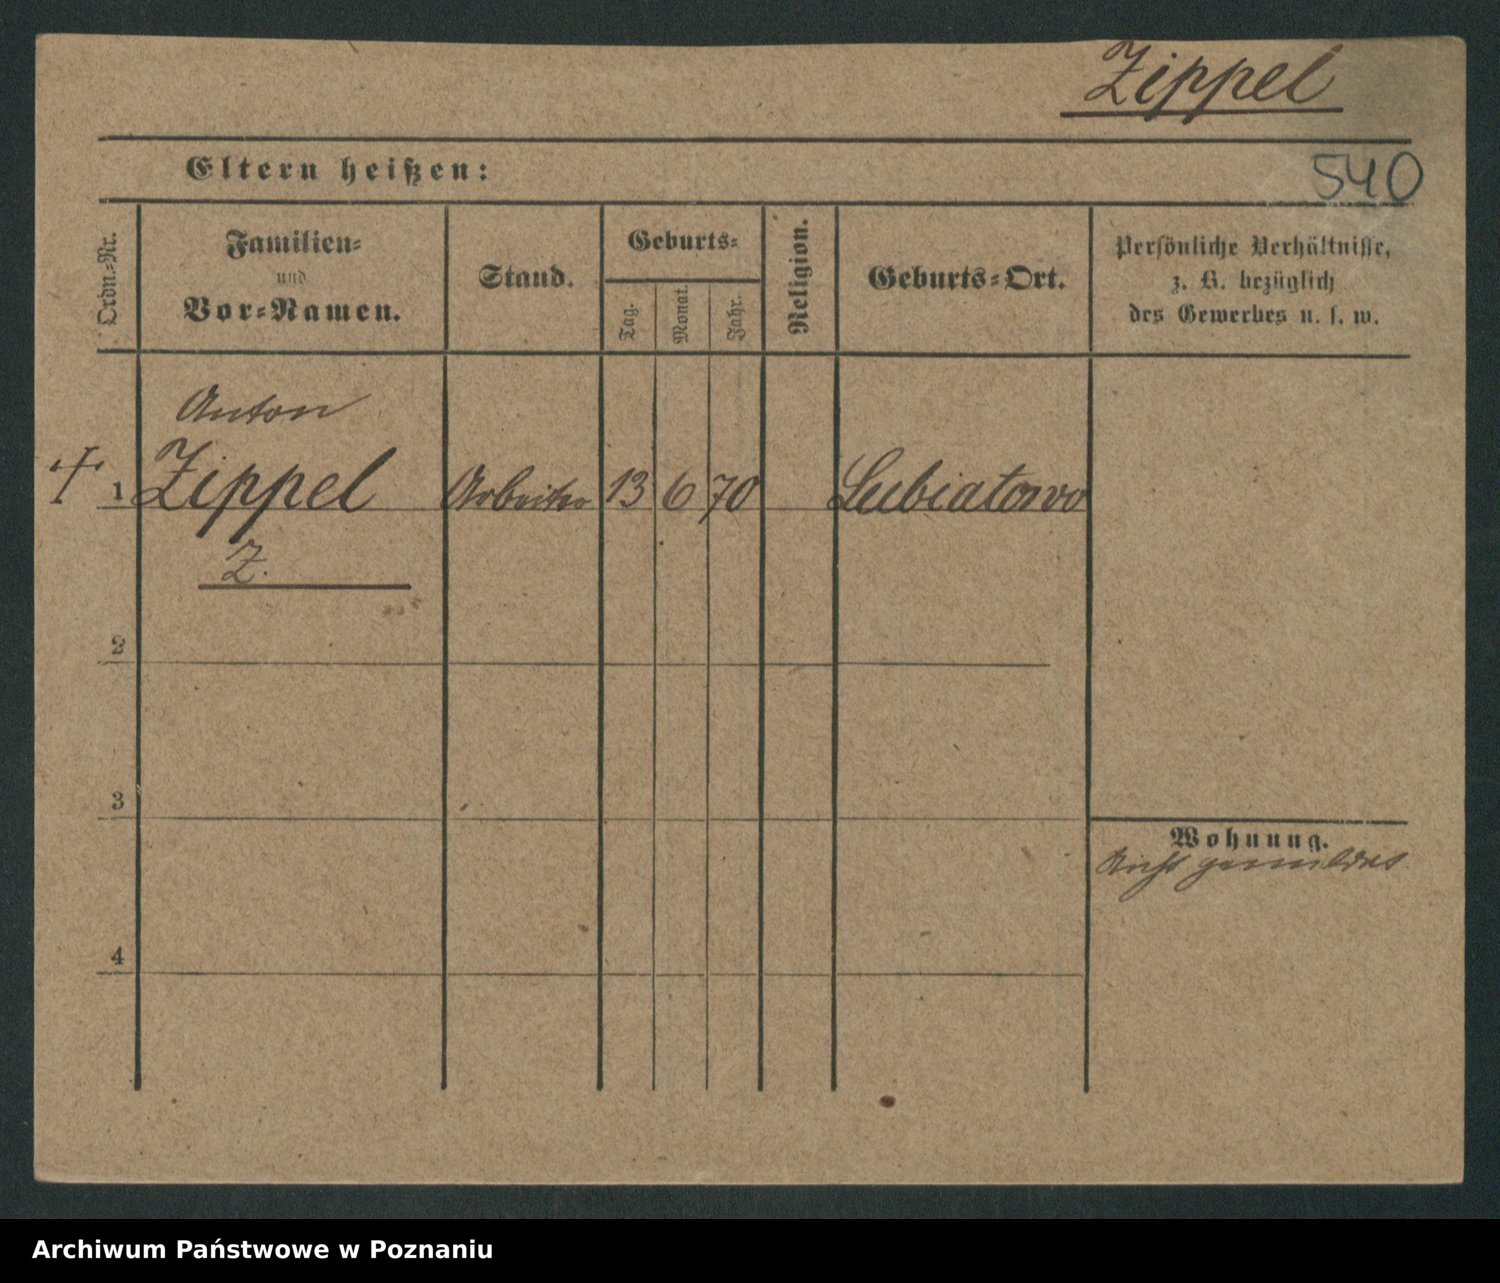 Zippel
Eltern heißen:
540
Ordn.=Nr.
Familien=
und
Vor=Namen.
Stand.
Geburts=
Tag.
Monat.
Jahr.
Religion.
Geburts=Ort.
Persönliche Verhältnisse,
z. B. bezüglich
des Gewerbes u. s. w.
Anton
1 Zippel Arbeiter 13 6 70 Lubiatowo
Z.
2
3
Wohnung.
Nicht gemeldet
4
Archiwum Państwowe w Poznaniu